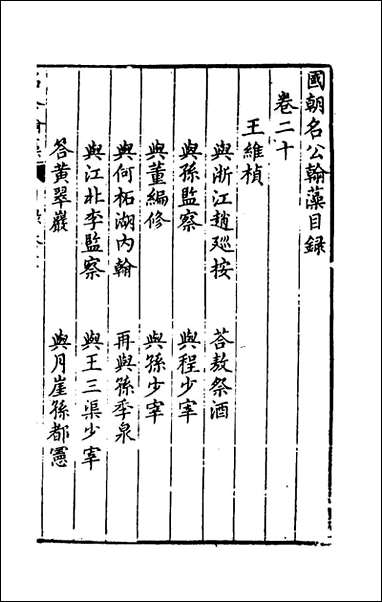 國朝名公翰藻目録
卷二十
王維楨
與浙江趙廵按
荅敖祭酒
與孫監察
與程少宰
與董編修
與孫少宰
與何柘湖內翰
再與孫季泉
與江北李監察
與王三渠少宰
荅黃翠巖
與月崖孫都憲